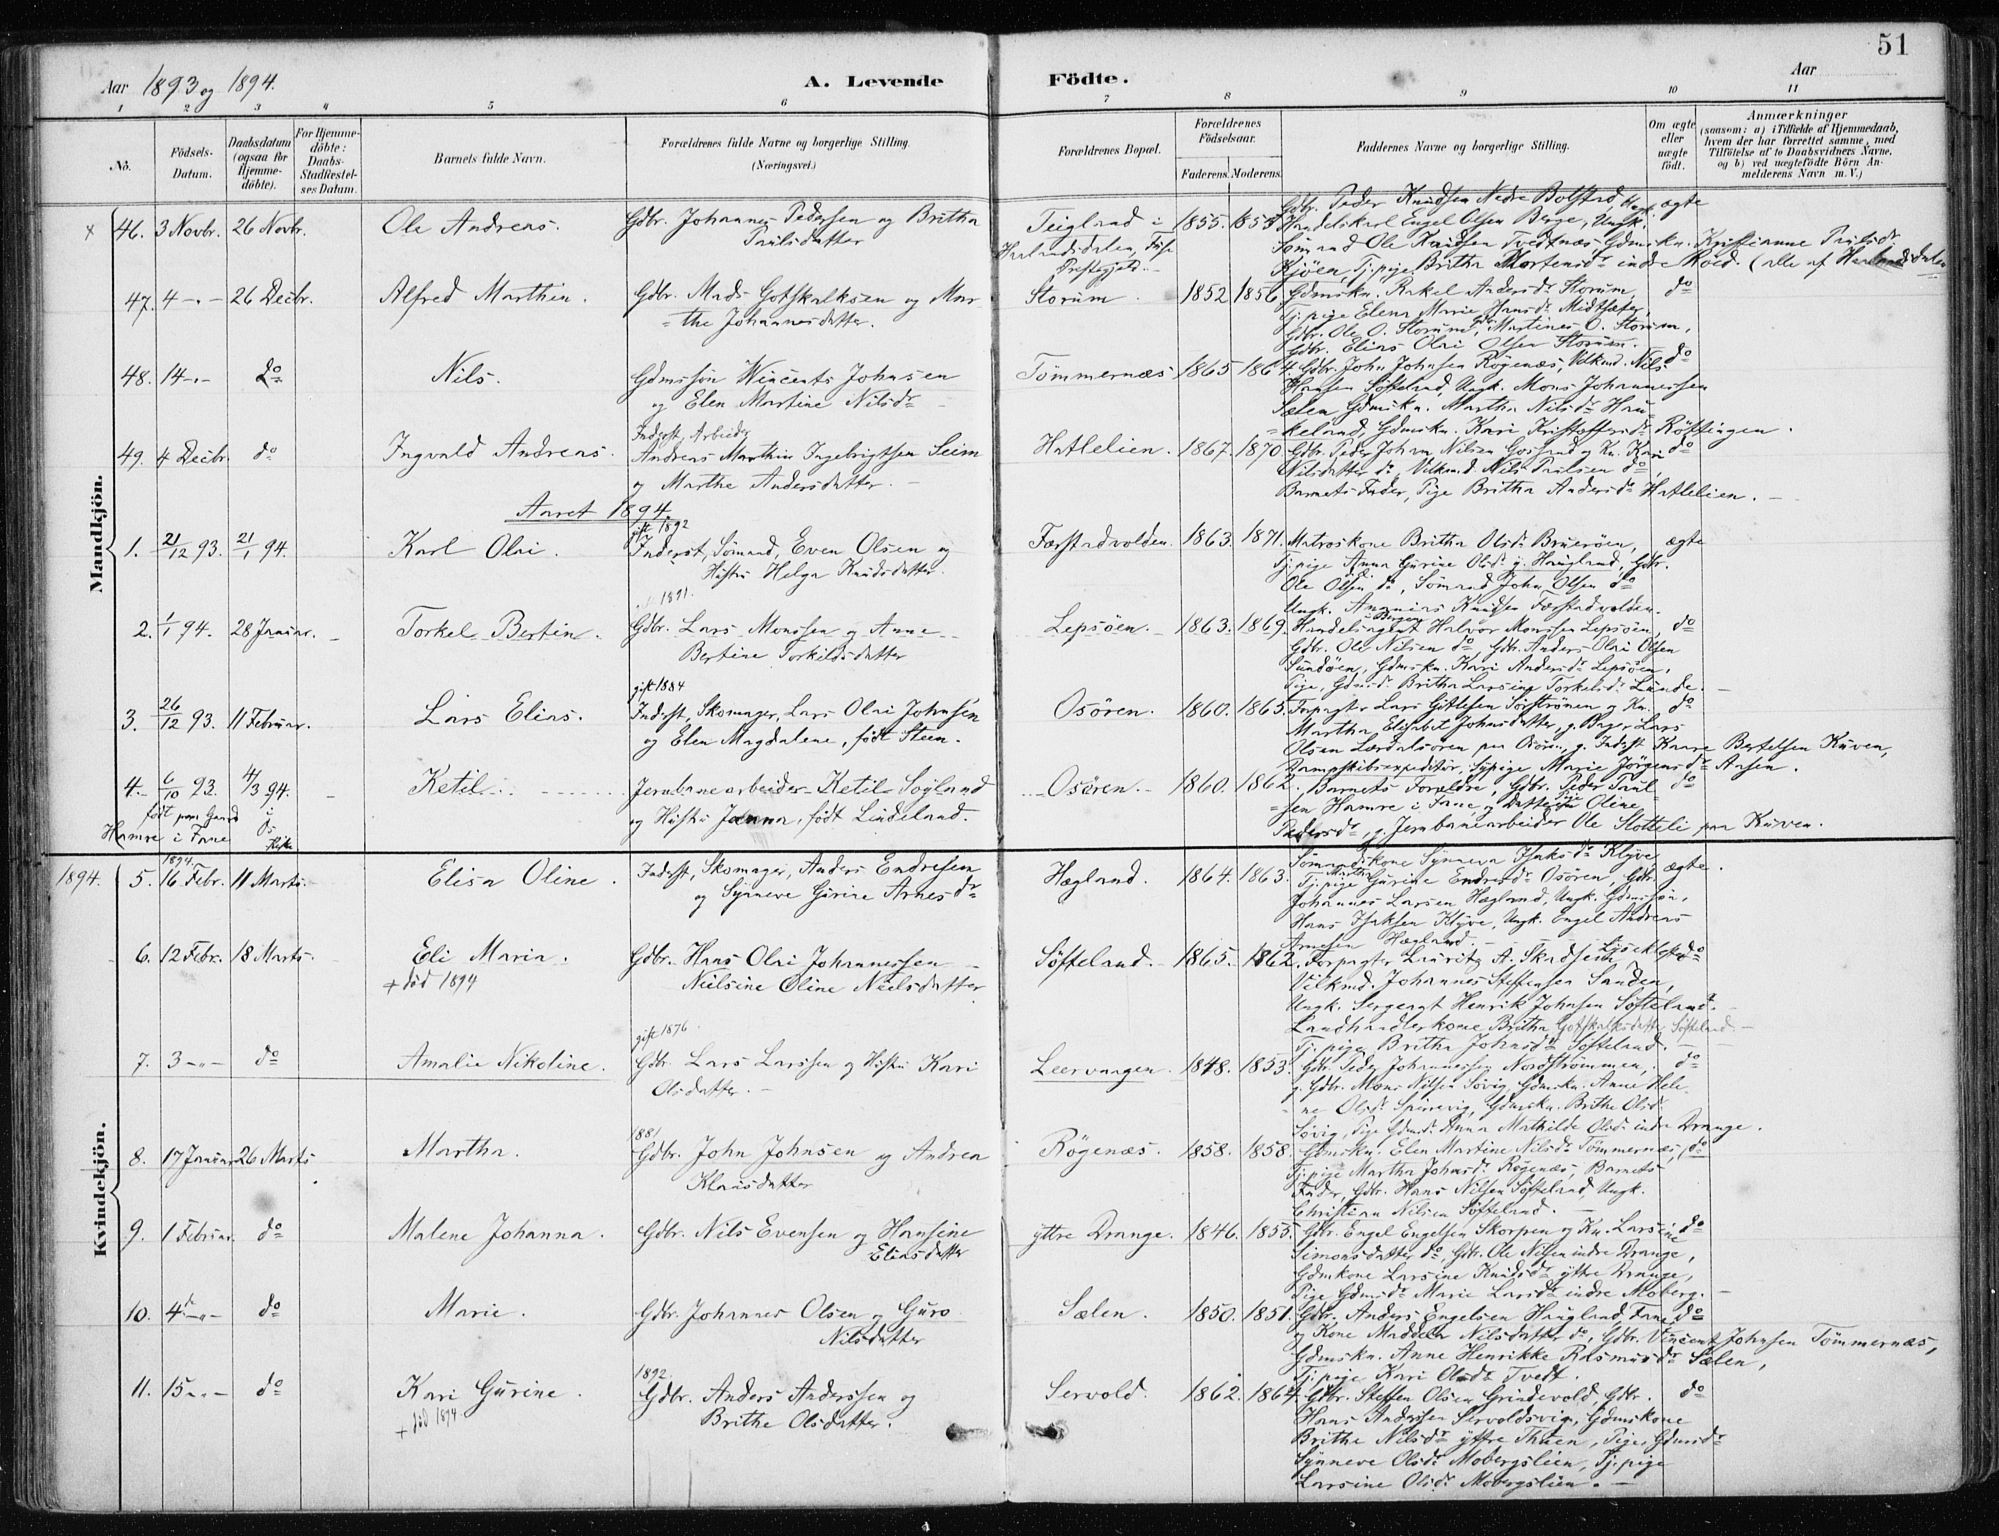 51
Aar 1893 og 1894.
A. Levende Födte.
Aar
1 2 3 4 5 6 7 8 9 10 11
No.
Födsels-Datum.
Daabsdatum (ogsaa for Hjemme-döbte).
For Hjemme-döbte: Daabs-Stadfæstel-ses Datum.
Barnets fulde Navn.
Forældrenes fulde Navne og borgerlige Stilling. (Næringsvei.)
Forældrenes Bopæl.
Forældrenes Födselsaar.
Faderens. Moderens.
Faddernes Navne og borgerlige Stilling.
Om ægte eller uægte födt.
Anmærkninger
(saasom: a) i Tilfælde af Hjemmedaab, hvem der har forrettet samme, med Tilföielse af to Daabsvidners Navne, og b) ved uægtefödte Börn An-melderens Navn m. V.)
Mandkjön.
x 46. 3 Novbr. 26 Novbr. Ole Andreas. Gdbr. Johannes Pedersen og Britha
Paulsdatter
Teigland i
Haalandsdalen, Fuse
Præstegjeld.
1855. 1855
Gdbr. Peder Knudsen Nedre Bolstad
Handelskarl Engel Olsen Berge, Ungk.
Sömand Ole Knudsen Tvedtnæs, Gdmskn. Kristianne Paulsdr
Kjöen, Tj. pige Britha Mortensdr indre Moed. (alle af Haalandsdalen
ægte
47. 4 -"- 26 Decbr. Alfred Marthin. Gdbr. Mads Gotskalksen og Mar-
=the Johannesdatter.
Storum. 1852 1856
Gdmskn. Rakel Andersdr Storum,
Tj. pige Elena Marie Hansdr Midtsæter,
Gdbr. Ole O. Storum, Martines O. Storum,
Gdbr. Elias Olai Olsen Storum.
do
48. 14 -"- do Nils. Gdmssön Wincents Johnsen
og Elen Martine Nilsdr
Tömmernæs 1865 1864.
Gdbr. John Johnsen Rögenæs, Velkmd. Nils
Hansen Söfteland, Ungk. Mons Johannessen
Sælen, Gdmskn. Martha Nilsdr Hau-
=keland, Gdmskn. Kari Kristoffersdr Röttingen.
do
49. 4 Decbr. do Ingvald Andreas. Inderst, Arbeider
Andreas Marthin Ingebrigtsen Seim
og Marthe Andersdatter.
Hatlelien. 1867. 1870
Gdbr. Peder Johan Nilsen Gaassand og Kn. Kari
Nilsdatter do, Velkmd. Nils Paulsen do,
Barnets Fader, Pige Britha Andersdr Hatlelien.
do
Aaret 1894.
1. 21/12 93. 21/1 94. Karl Olai. gift 1892
Inderst, Sömand, Even Olsen og
Hustru Helga Knudsdatter.
Færstadvolden. 1863. 1871.
Matroskone Britha Olsdr Brueröen,
Tj. pige Anna Gurine Olsdr y. Haugland, Gdbr.
Ole Olsen do, Sömand John Olsen do
Ungk. Ananias Knudsen Færstadvolden.
ægte
2. 1/1 94. 28 Januar. Torkel Bertin. 1891.
Gdbr. Lars Monssen og Anne
Bertine Torkildsdatter
Lepsöen. 1863. 1869.
Bergen
Handelsagent Halvor Monssen Lepsöen,
Gdbr. Ole Nilsen do, Gdbr. Anders Olai Olsen
Sundöen, Gdmskn. Kari Andersdr Lepsöen,
Pige, Gdmsdr Britha Larsine Torkelsdr Lunde.
do
3. 26/12 93. 11 Februar. Lars Elias. gift 1884
Inderst, Skomager, Lars Olai Johnsen
og Elen Magdalene, födt Steen.
Osören. 1860. 1865.
Forpagter Lars Gitlesen Sörströnen og Kn.
Martha Elisabet Johnsdatter, g. Bager Lars
Olsen Lærdalsören paa Osören, g. Inderst Kaare Bertelsen Kuven,
Dampskibsexpeditör, Sypige Marie Jörgensdr Aasen.
do
4. 6/10 93. 4/3 94. Ketil. Jernbanearbeider Ketil Sogland
og Hustru Janna, födt Lindeland.
födt paa Gaard
Hamre i Fane
i Os Kirke
Osören. 1860. 1862.
Barnets Forældre, Gdbr. Peder Paul-
=sen Hamre i Fane og Datter Pige Oline
Pedersdr, g. Jernbanearbeider Ole Slotteli paa Kuven.
do
Kvindekjön.
1894. 5. 1894. 16 Febr. 11 Marts. Elisa Oline. Inderst, Skomager, Anders Endresen
og Synneve Gurine Arnesdr
Hægland. 1864. 1863.
Sömandskone Synneva Isaksdr Klyve
Tj. pige Martha Gurine Endresdr Osören, Gdbr.
Johannes Larsen Hægland, Ungk. Gdmssön,
Hans Isaksen Klyve, Ungk. Engel Andreas
Arnesen Hægland.
ægte.
6. 12 Febr. 18 Marts. Eli Maria.
+ död 1894
Gdbr. Hans Olai Johannessen
Nielsine Oline Nielsdatter
Söfteland. 1865. 1862.
Forpagter Lauritz A. Skadsem, Lyseklosd.
Vilkmd. Johannes Steffensen Sanden,
Ungk. Sergeant Henrik Johnsen Söfteland.
Landhandlerkone Britha Gotskalksdatter Söfteland.
Tj. pige Britha Johnsdr Söfteland.
do
7. 3 -"- do Amalie Nikoline. gift 1876.
Gdbr. Lars Larssen og Hustru Kari
Olsdatter.
Leervaagen. 1848. 1853.
Gdbr. Peder Johannessen Nordströmmen,
g. Gdbr. Mons Nilsen Sövig, Gdmskn. Anne Hele-
ne Olsdr Spörrevig, Gdmskn. Brithe Olsdr
Sövig, Pige Gdmsdr Anna Mathilde Olsdr indre Drange.
do
8. 17 Januar 26 Marts Martha. 1881
Gdbr. John Johnsen og Andrea
Klausdatter
Rögenæs. 1858. 1858.
Gdmskn. Elen Martine Nilsdr Tömmernæs,
Tj. pige Martha Johnsdr Rögenæs, Barnets
Fader, Gdbr. Hans Nilsen Söfteland, Ungk.
Christian Nilsen Söfteland.
do
9. 1 Februar. do Malene Johanna. Gdbr. Nils Evensen og Hansine
Eliasdatter
yttre Drange. 1846. 1855.
Gdbr. Engel Engelsen Skorpen og Kn. Larsine
Simonsdatter do, Gdbr. Ole Nilsen indre Drange,
Gdmkone Larsine Knudsdr yttre Drange,
Pige Gdmsdr Marie Larsdr indre Moberg.
do
10. 4de -"- do Marie. Gdbr. Johannes Olsen og Guro
Nilsdatter
Sælen. 1850. 1851.
Gdbr. Anders Engelsen Haugland, Fane
og Kone Maddela Nilsdatter do, Gdbr. Vincent Johnsen Tömmernæs,
Gdmskn. Anne Henrikke Rasmusdr Sælen,
Tj. pige Kari Olsdr Tvedt.
do
11. 15 -"- do Kari Gurine.
+ död 1894
1892.
Gdbr. Anders Anderssen og
Brithe Olsdatter.
Servold. 1862. 1864.
Gdbr. Steffen Olsen Grindevold, Gdbr.
Hans Anderssen Servoldsvig, Gdmskone
Brithe Nilsdr yttre Thuen, Pige, Gdmsdr
Synneve Olsdr Mobergslien, Tj. pige
Larsine Olsdr Mobergslien.
do